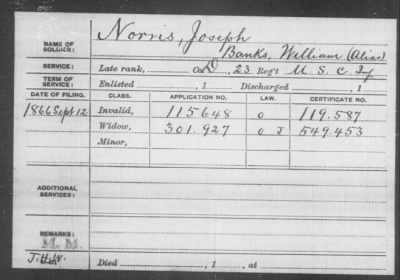 NAME OF SOLDIER: Norris, Joseph
Banks, William (Alias)
SERVICE: Late rank, Co. D, 23 Reg't U. S. C. Inf
TERM OF SERVICE: Enlisted , 1 Discharged , 1
DATE OF FILING. CLASS. APPLICATION NO. LAW. CERTIFICATE NO.
1866 Sept 12 Invalid, 115648 O 119.587
Widow, 301.927 O J 549.453
Minor,
ADDITIONAL SERVICES:
REMARKS:
Died , 1 , at